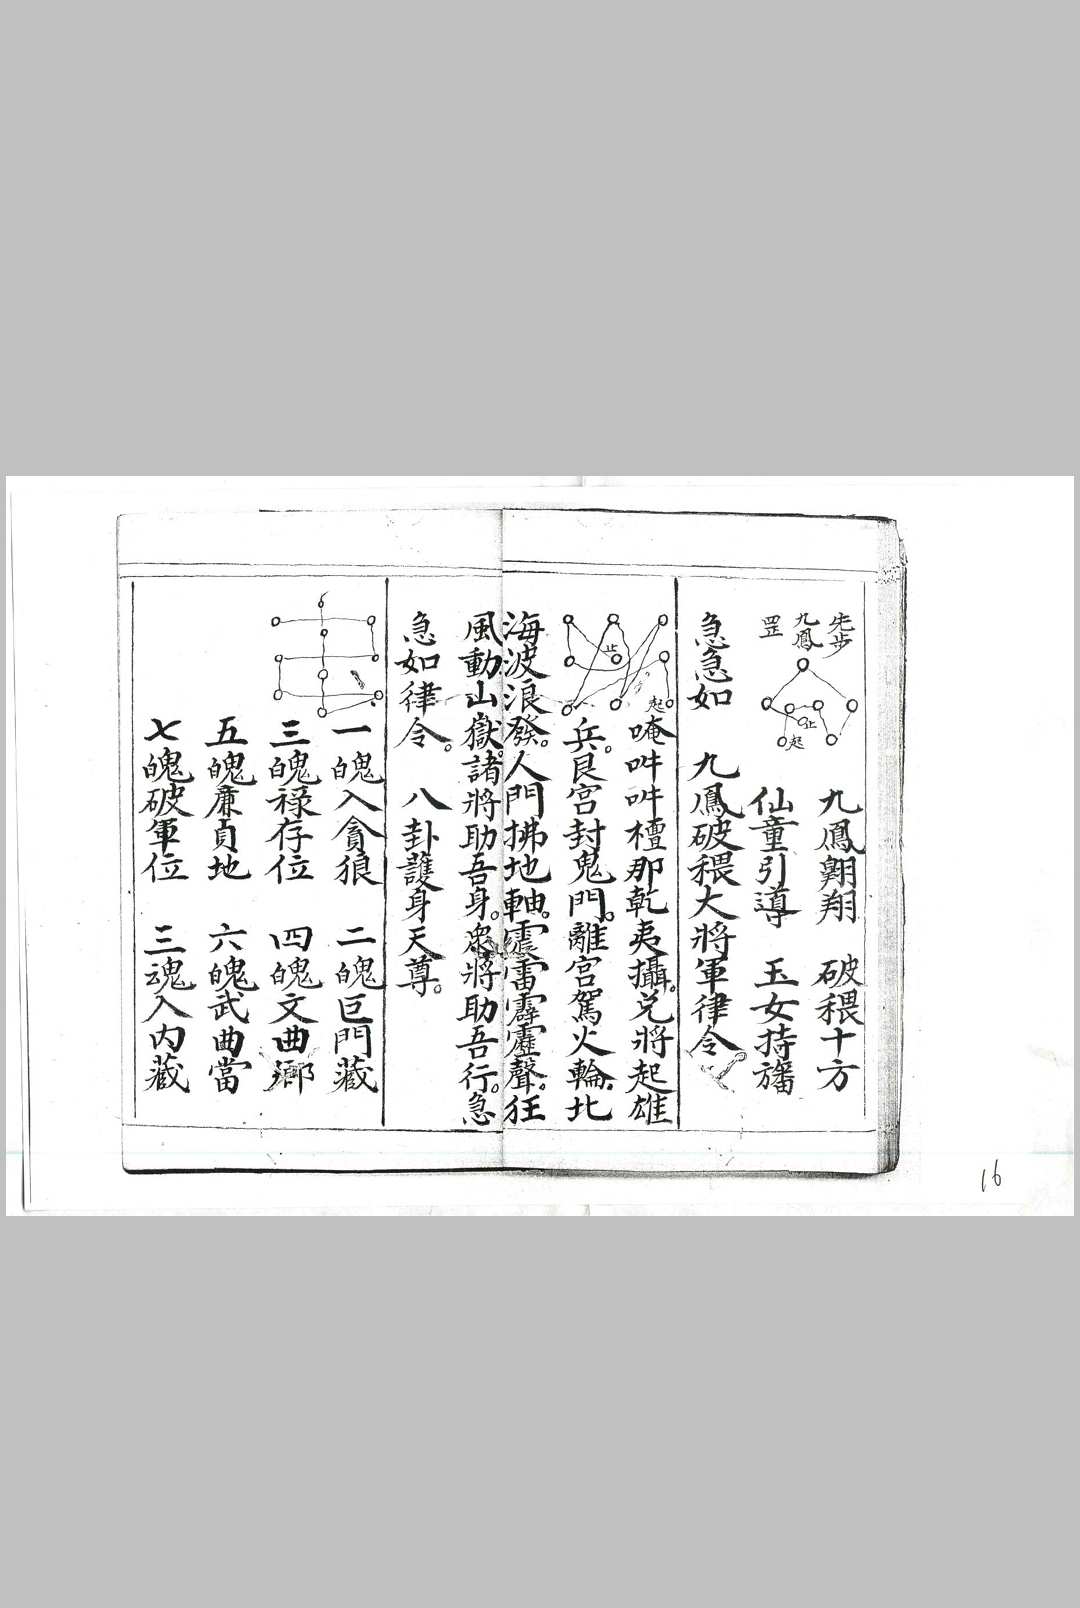 先步
九鳳
罡
止
起
九鳳翺翔　破穢十方
仙童引導　玉女持旛
急急如　九鳳破穢大將軍律令
止
起
唵吽吽檀那乾夷攝。兌將起雄
兵。艮宮封鬼門。離宮駕火輪。北
海波浪發。人門拂地軸。震雷霹靂聲。狂
風動山嶽。諸將助吾身。眾將助吾行。急
急如律令。　八卦護身天尊。
一魄入貪狼　二魄巨門藏
三魄祿存位　四魄文曲鄉
五魄廉貞地　六魄武曲當
七魄破軍位　三魂入內藏
16